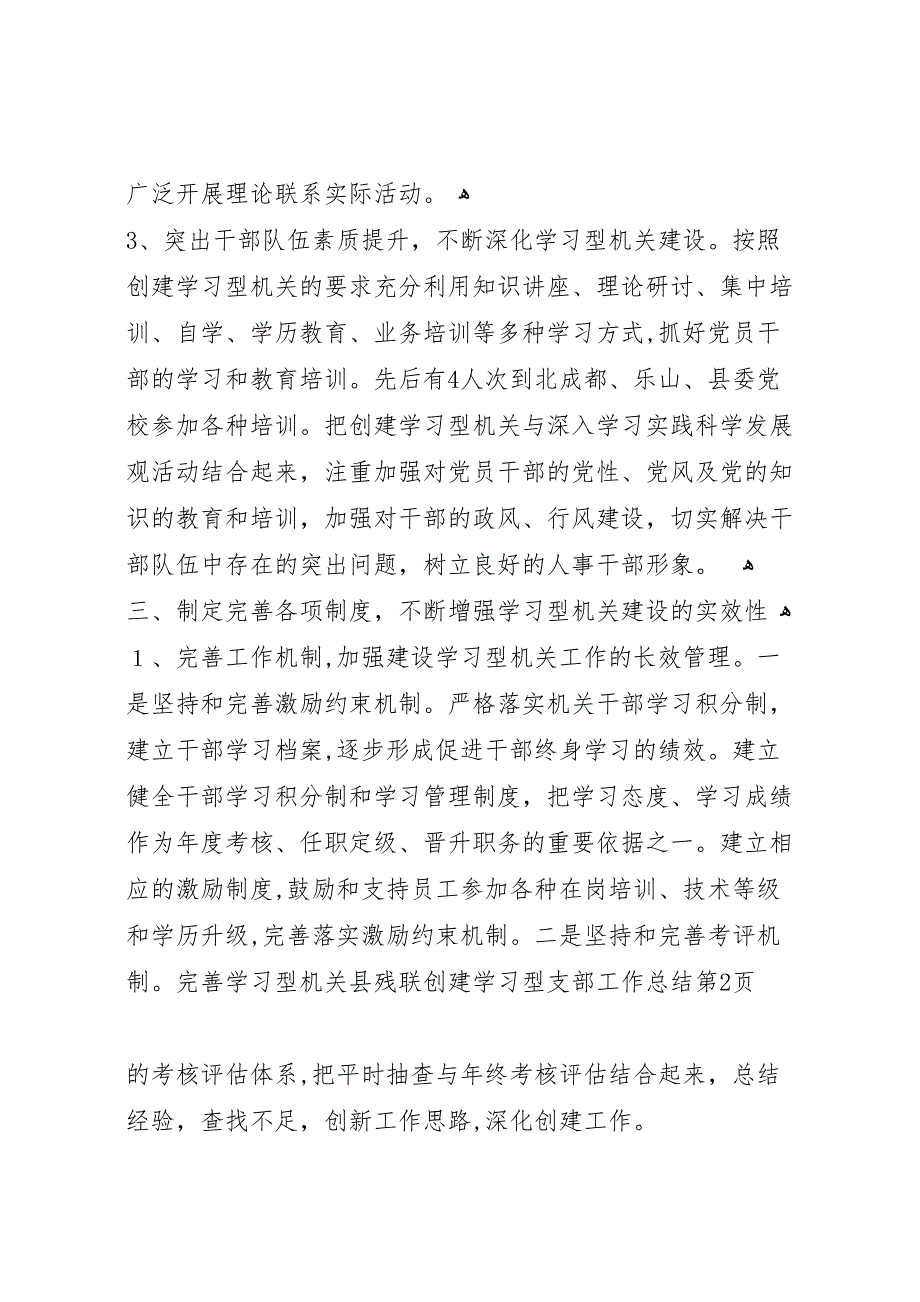 广泛开展理论联系实际活动。 ﻫ
3、突出干部队伍素质提升，不断深化学习型机关建设。按照
创建学习型机关的要求充分利用知识讲座、理论研讨、集中培
训、自学、学历教育、业务培训等多种学习方式,抓好党员干
部的学习和教育培训。先后有4人次到北成都、乐山、县委党
校参加各种培训。把创建学习型机关与深入学习实践科学发展
观活动结合起来，注重加强对党员干部的党性、党风及党的知
识的教育和培训，加强对干部的政风、行风建设，切实解决干
部队伍中存在的突出问题，树立良好的人事干部形象。 ﻫ
三、制定完善各项制度，不断增强学习型机关建设的实效性 ﻫ
１、完善工作机制,加强建设学习型机关工作的长效管理。一
是坚持和完善激励约束机制。严格落实机关干部学习积分制，
建立干部学习档案,逐步形成促进干部终身学习的绩效。建立
健全干部学习积分制和学习管理制度，把学习态度、学习成绩
作为年度考核、任职定级、晋升职务的重要依据之一。建立相
应的激励制度,鼓励和支持员工参加各种在岗培训、技术等级
和学历升级,完善落实激励约束机制。二是坚持和完善考评机
制。完善学习型机关县残联创建学习型支部工作总结第2页
的考核评估体系,把平时抽查与年终考核评估结合起来，总结
经验，查找不足，创新工作思路,深化创建工作。